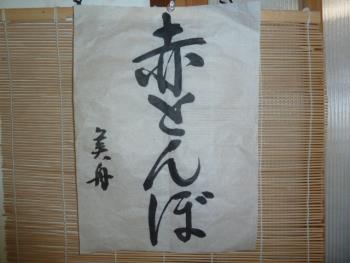 赤とんぼ
美舟